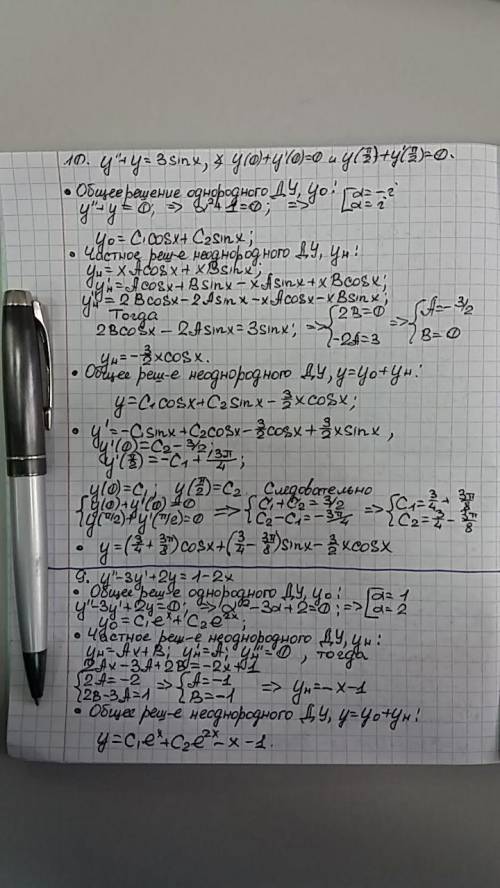 10. y''+y=3sinx, y(0)+y'(0)=0 и y(π/2)+y'(π/2)=0.
• Общее решение однородного ДУ, y₀:
y''+y=0; => α²+1=0; => [α=-i
α=i
y₀=C₁cosx+C₂sinx;
• Частное реш-е неоднородного ДУ, yн:
yн=xAcosx+xBsinx;
y'н=Acosx+Bsinx-xAsinx+xBcosx;
y''н=2Bcosx-2Asinx-xAcosx-xBsinx;
Тогда
2Bcosx-2Asinx=3sinx; => {2B=0 => {A=-3/2
-2A=3 B=0
yн=-3/2xcosx.
• Общее реш-е неоднородного ДУ, y=y₀+yн:
y=C₁cosx+C₂sinx-3/2xcosx;
• y'=-C₁sinx+C₂cosx-3/2cosx+3/2xsinx,
y'(0)=C₂-3/2;
y'(π/2)=-C₁+3π/4;
y(0)=C₁; y(π/2)=C₂. Следовательно
{y(0)+y'(0)=0 => {C₁+C₂=3/2 => {C₁=3/4+3π/8
y(π/2)+y'(π/2)=0 C₂-C₁=-3π/4 C₂=3/4-3π/8
• y=(3/4+3π/8)cosx+(3/4-3π/8)sinx-3/2xcosx
9. y''-3y'+2y=1-2x
• Общее реш-е однородного ДУ, y₀:
y''-3y'+2y=0; => α²-3α+2=0; => [α=1
α=2
y₀=C₁eˣ+C₂e²ˣ;
• Частное реш-е неоднородного ДУ, yн:
yн=Ax+B; y'н=A; y''н=0, тогда
2Ax-3A+2B=-2x+1
{2A=-2 => {A=-1 => yн=-x-1
2B-3A=1 B=-1
• Общее реш-е неоднородного ДУ, y=y₀+yн:
y=C₁eˣ+C₂e²ˣ-x-1.